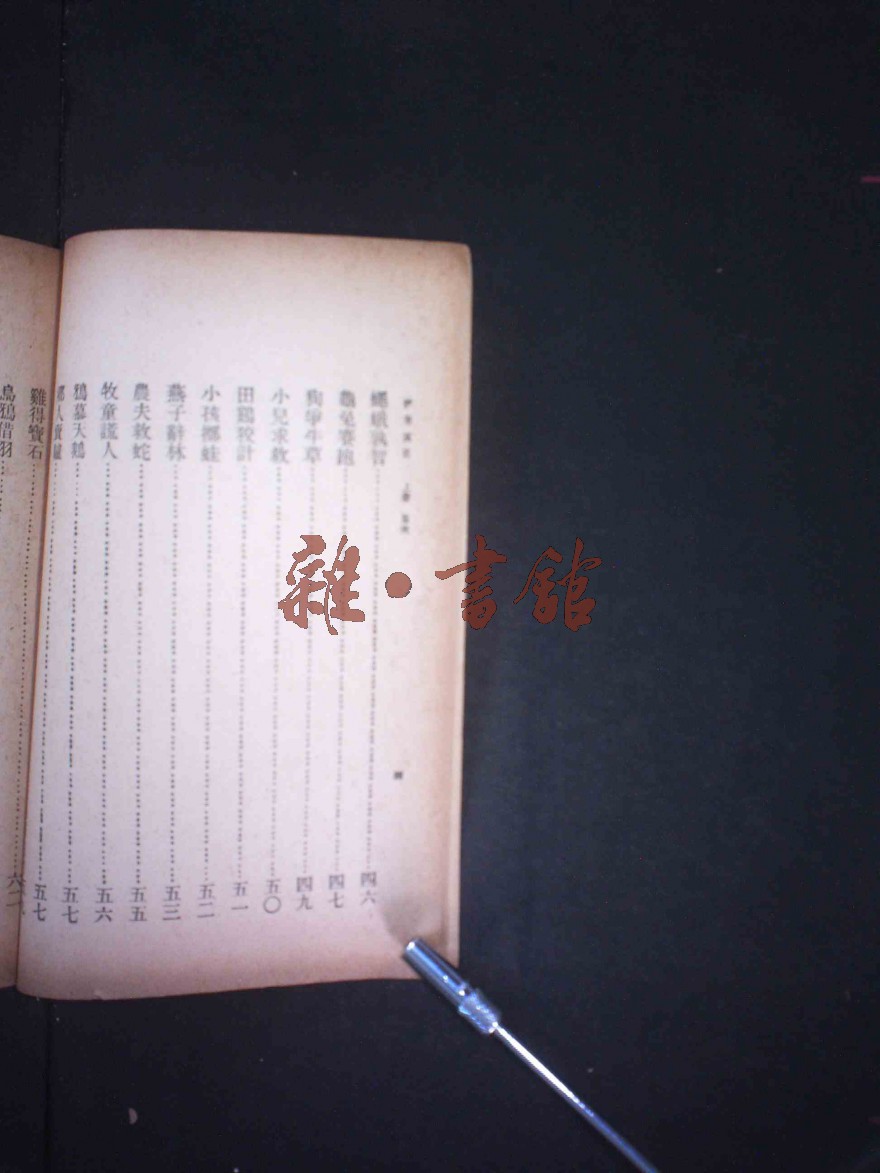 伊索寓言 上冊 目次 四
四六
龜兔賽跑……四七
牛草……四九
小兒求救……五〇
田鷄狡計……五一
小孩擲蛙……五二
燕子辭林……五三
農夫救蛇……五五
牧童謊人……五六
鴉慕天鵝……五七
人賣……五七
雞得寶石……
烏鴉借羽……六二
雜·書館